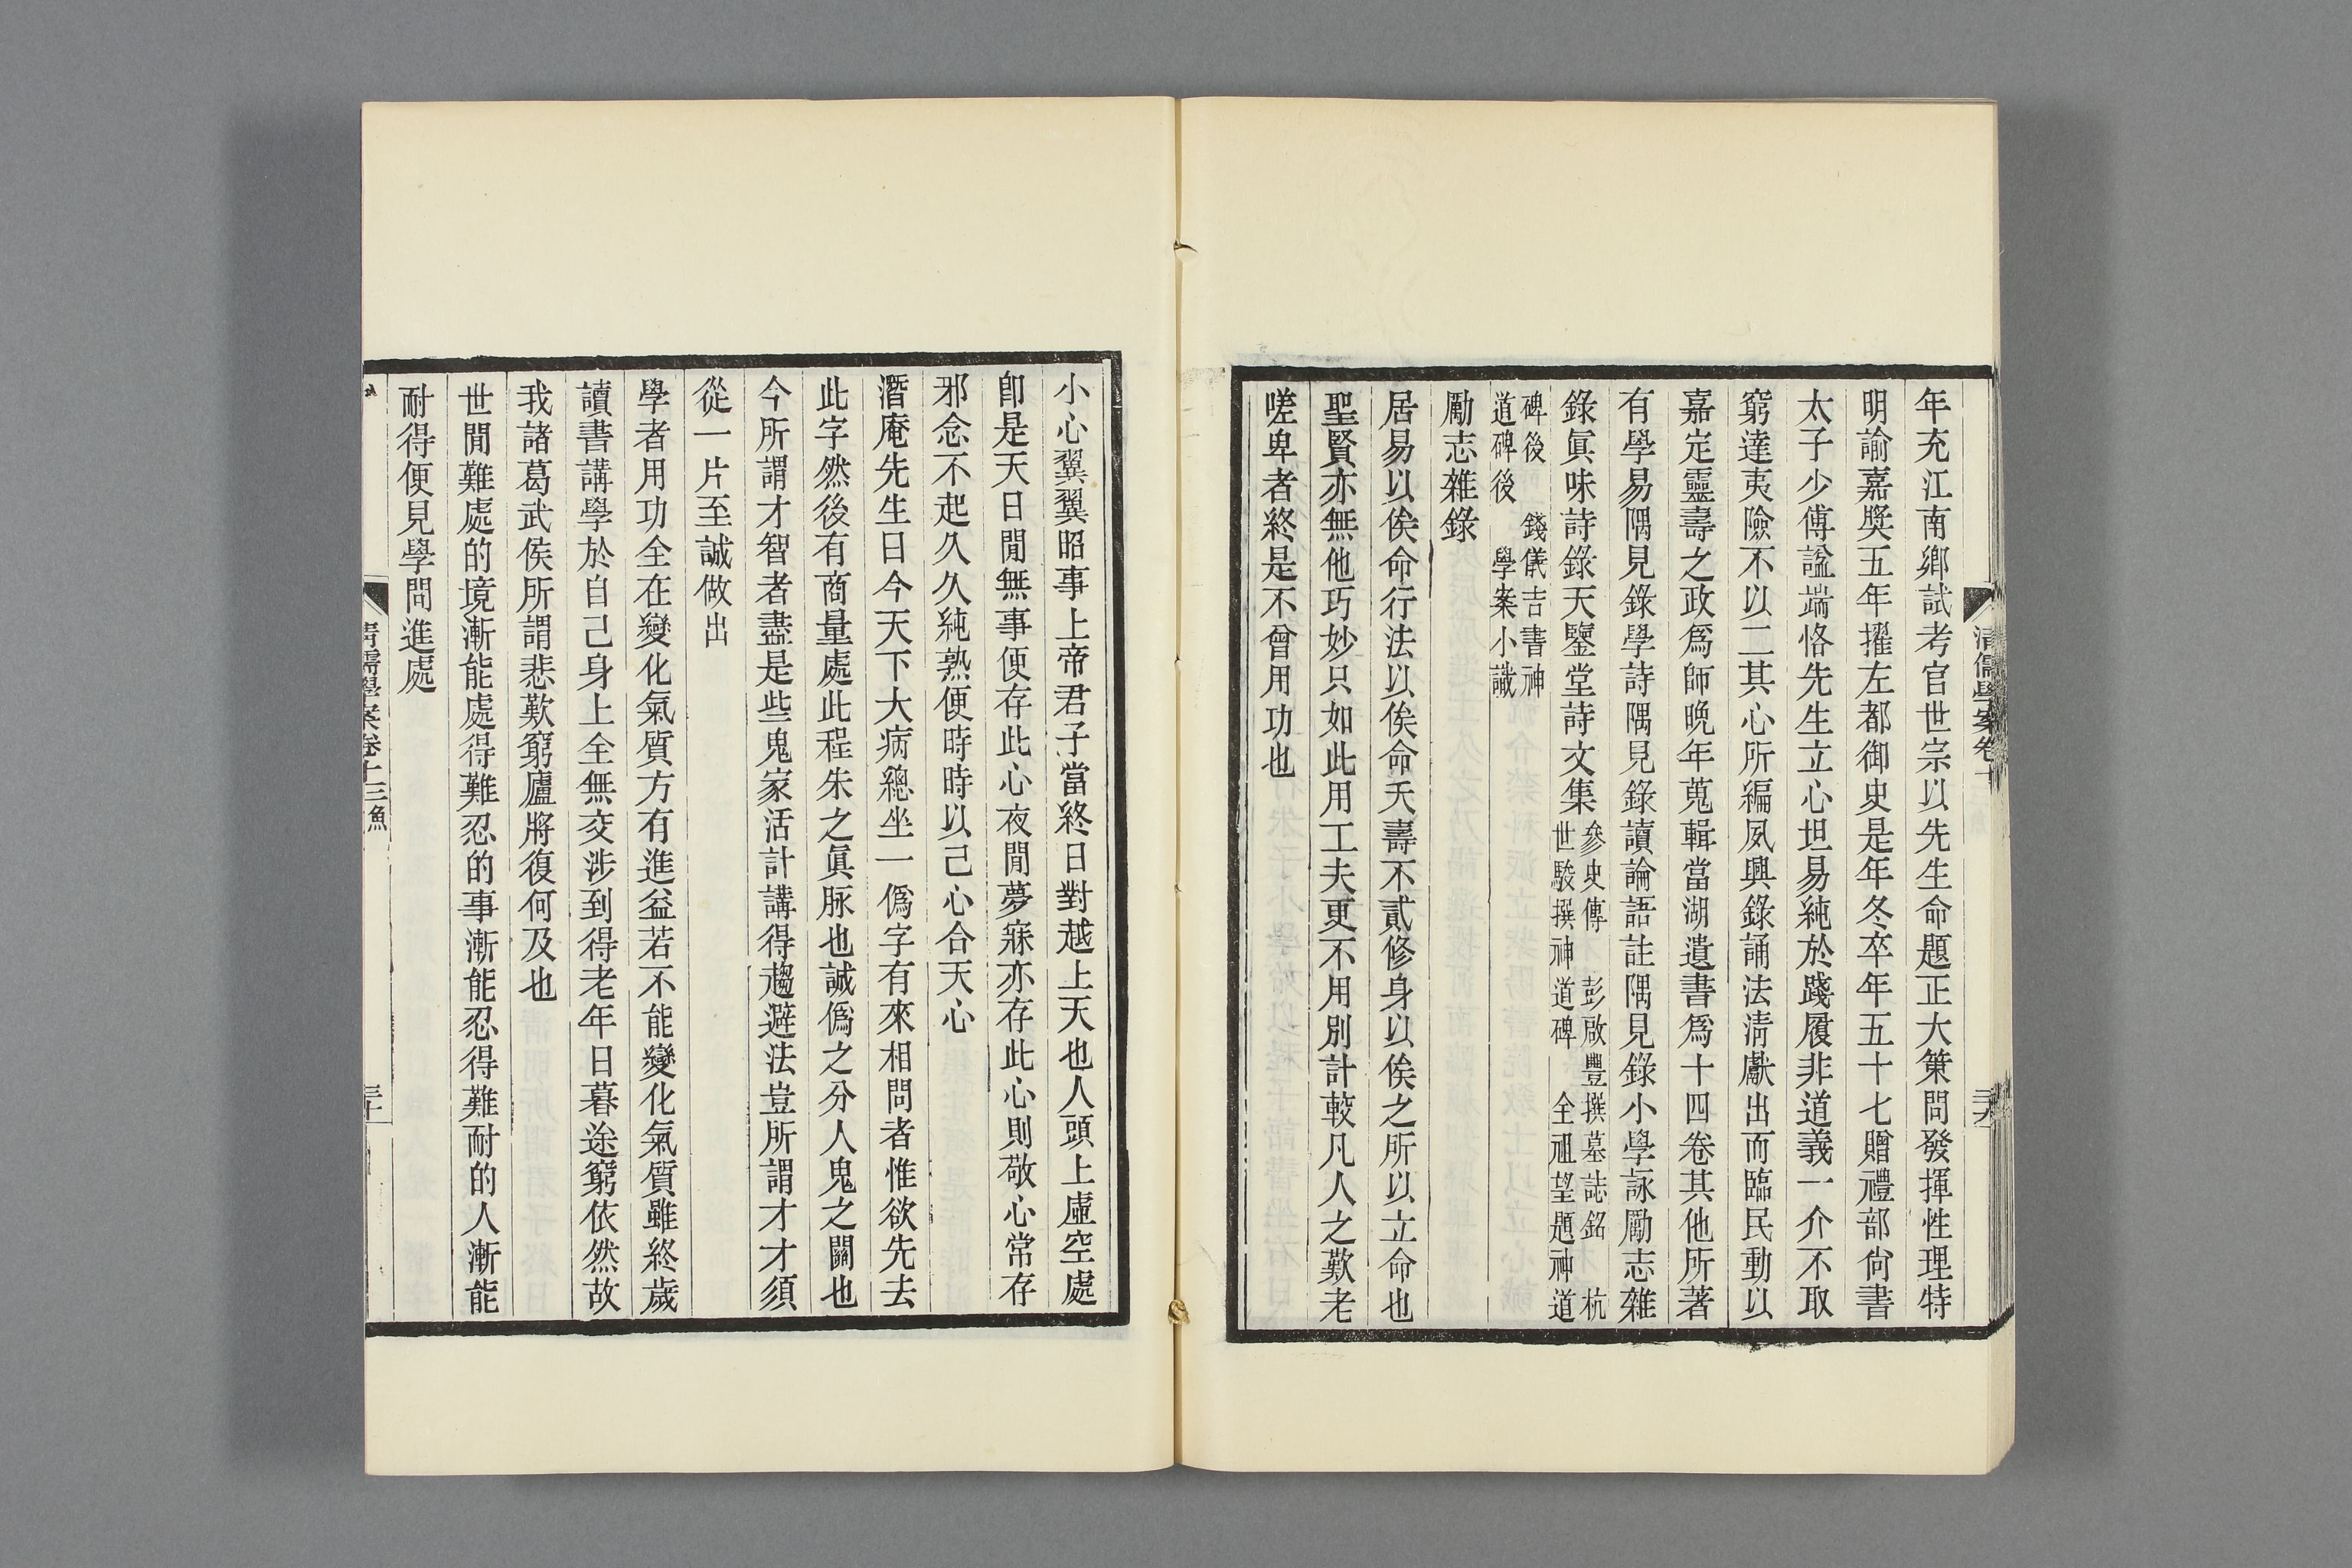 年充江南鄉試考官世宗以先生命題正大策問發揮性理特
明諭嘉獎五年擢左都御史是年冬卒年五十七贈禮部尙書
太子少傅諡端恪先生立心坦易純於踐履非道義一介不取
窮達夷險不以二其心所編夙興錄誦法淸獻出而臨民動以
嘉定靈壽之政爲師晚年蒐輯當湖遺書爲十四卷其他所著
有學易隅見錄學詩隅見錄讀論語註隅見錄小學詠勵志雜
錄眞味詩錄天鑒堂詩文集參史傳 彭啟豐撰墓誌銘 杭世駿撰神道碑 全祖望題神道
碑後 錢儀吉書神道碑後 學案小識
勵志雜錄
居易以俟命行法以俟命夭壽不貳修身以俟之所以立命也
聖賢亦無他巧妙只如此用工夫更不用別計較凡人之歎老
嗟卑者終是不曾用功也
小心翼翼昭事上帝君子當終日對越上天也人頭上虛空處
卽是天日閒無事便存此心夜閒夢寐亦存此心則敬心常存
邪念不起久久純熟便時時以己心合天心
潛庵先生曰今天下大病總坐一僞字有來相問者惟欲先去
此字然後有商量處此程朱之眞脈也誠僞之分人鬼之關也
今所謂才智者盡是些鬼家活計講得趨避法豈所謂才才須
從一片至誠做出
學者用功全在變化氣質方有進益若不能變化氣質雖終歲
讀書講學於自己身上全無交涉到得老年日暮途窮依然故
我諸葛武侯所謂悲歎窮廬將復何及也
世閒難處的境漸能處得難忍的事漸能忍得難耐的人漸能
耐得便見學問進處
清儒學案卷十三漁